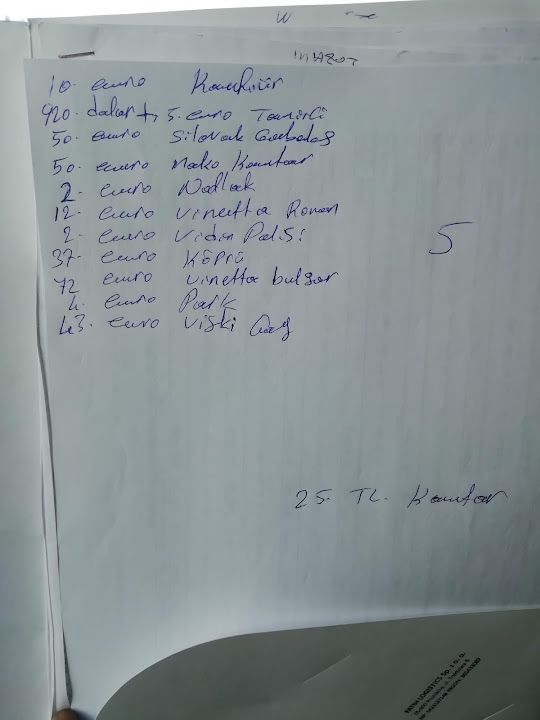 MAZOT
10. euro
920. dolar + 5. euro Tamirci
50. euro Silovak
50. euro Mako Kantar
2. euro Nadlak
12. euro vinetta Roman
2. euro Vidin Polisi
37. euro Köprü
72 euro vinetta bulgar
4. euro Park
43. euro viski
5
25. TL. Kantar
FATIH LOGISTICS SP. Z O. O.